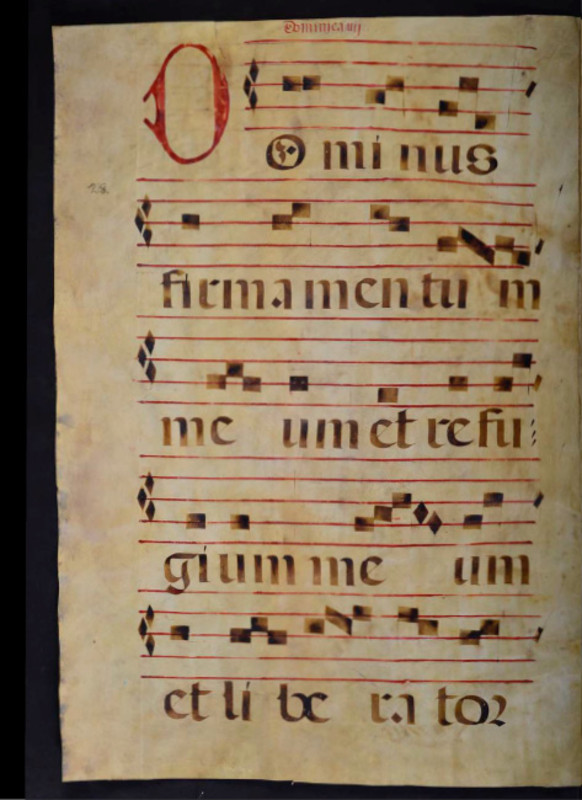 Dominica iiij
DOminus
firmamentum
me um et refu
gium me um
et li be ra tor